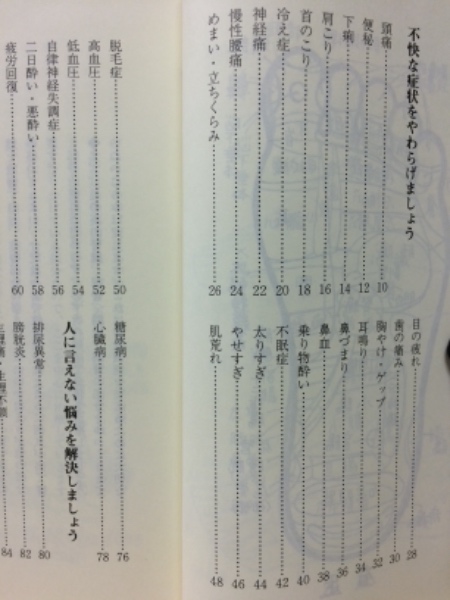 不快な症状をやわらげましょう
頭痛 10
便秘 12
下痢 14
肩こり 16
首のこり 18
冷え症 20
神経痛 22
慢性腰痛 24
めまい・立ちくらみ 26
目の疲れ 28
歯の痛み 30
胸やけ・ゲップ 32
耳鳴り 34
鼻づまり 36
鼻血 38
乗り物酔い 40
不眠症 42
太りすぎ 44
やせすぎ 46
肌荒れ 48
脱毛症 50
高血圧 52
低血圧 54
自律神経失調症 56
二日酔い・悪酔い 58
疲労回復 60
糖尿病 76
心臓病 78
人に言えない悩みを解決しましょう
排尿異常 80
膀胱炎 82
84